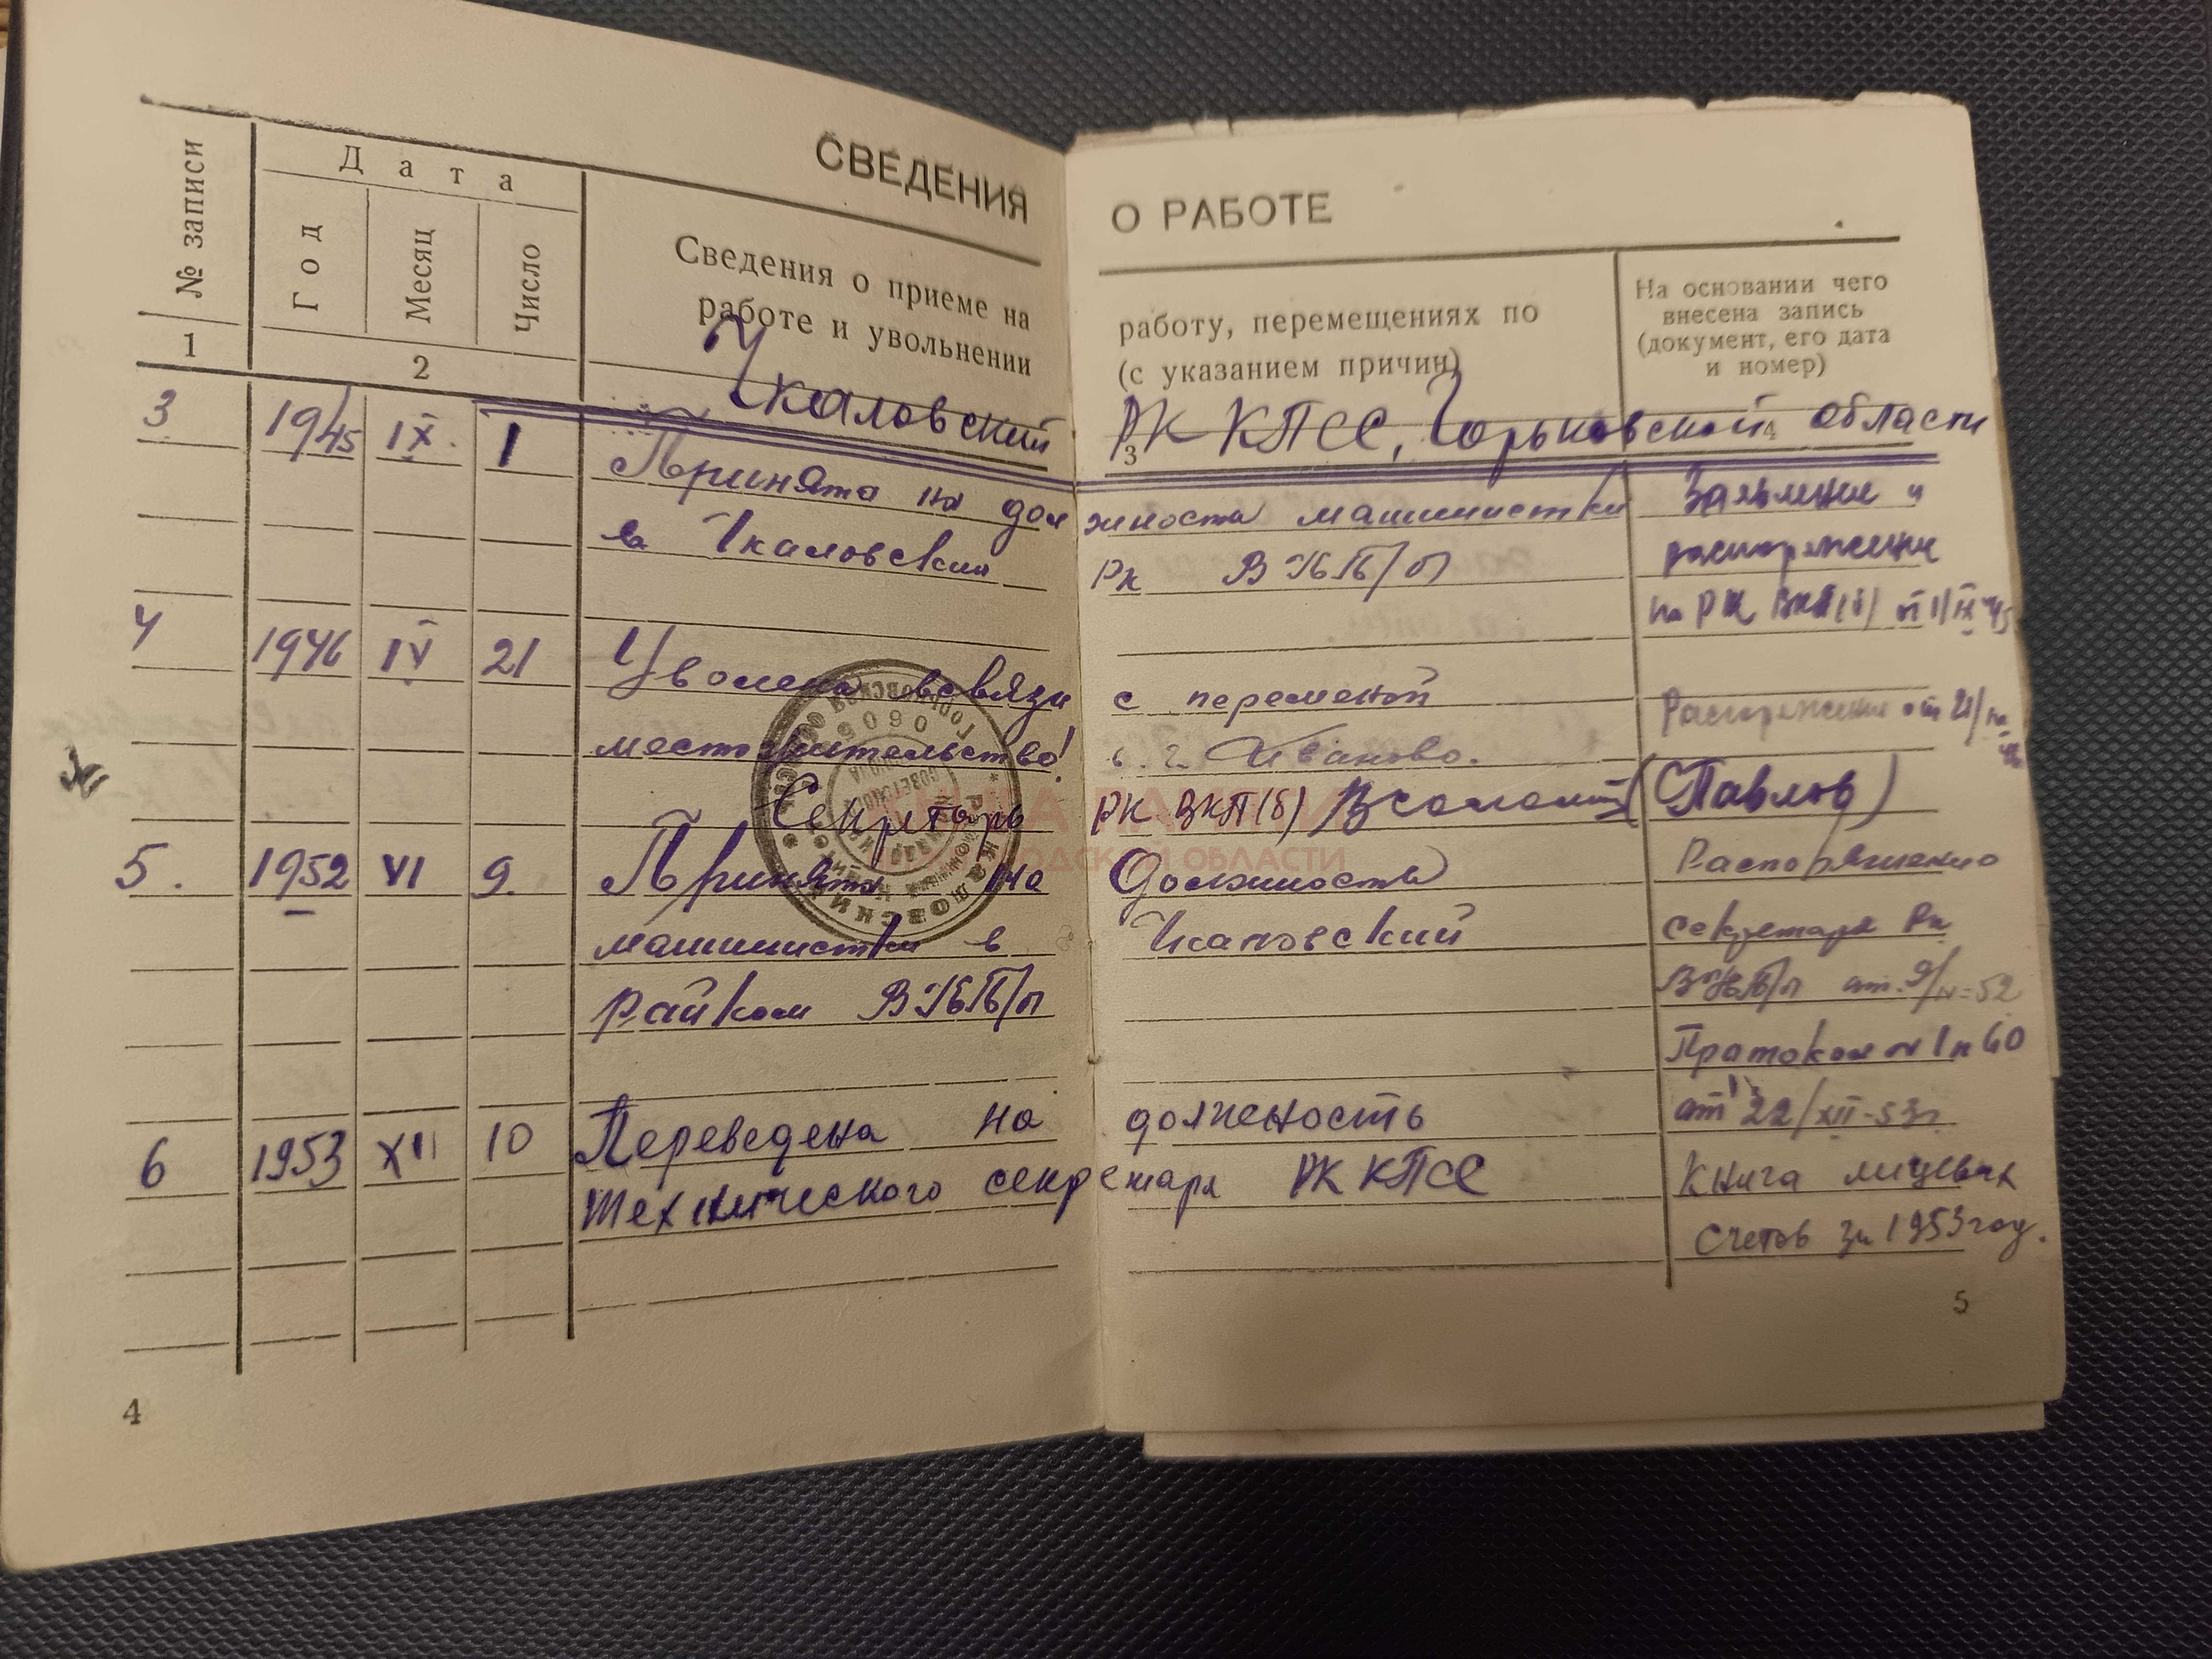 СВЕДЕНИЯ О РАБОТЕ
№ записи
Дата
Год
Месяц
Число
Сведения о приеме на работу, перемещениях по
работе и увольнении (с указанием причин)
На основании чего
внесена запись
(документ, его дата
и номер)
1 2 3 4
Чкаловский РК КПСС, Горьковской области
3 1945 IX. 1 Принята на должность машинистки Заявление и
в Чкаловский РК ВКП/б распоряжение
по РК ВКП(б) от 1/IX 45
4 1946 IV 21 Уволена всвязи с переменой Распоряжение от 21/
местожительство! в г. Иваново.
Секретарь РК ВКП(б) (Павлов)
5. 1952 VI 9. Принята на должность Распоряжение
машинистки в Чкаловский секретаря Рк
Райком ВКП/б ВКП/б от 9/ 52
Протокол 60
от 22/XII-53г
6 1953 XII 10 Переведена на должность
технического секретаря РК КПСС Книга лицевых
счетов за 1953 год.
4
5
КНИГА ПАМЯТИ
НИЖЕГОРОДСКОЙ ОБЛАСТИ